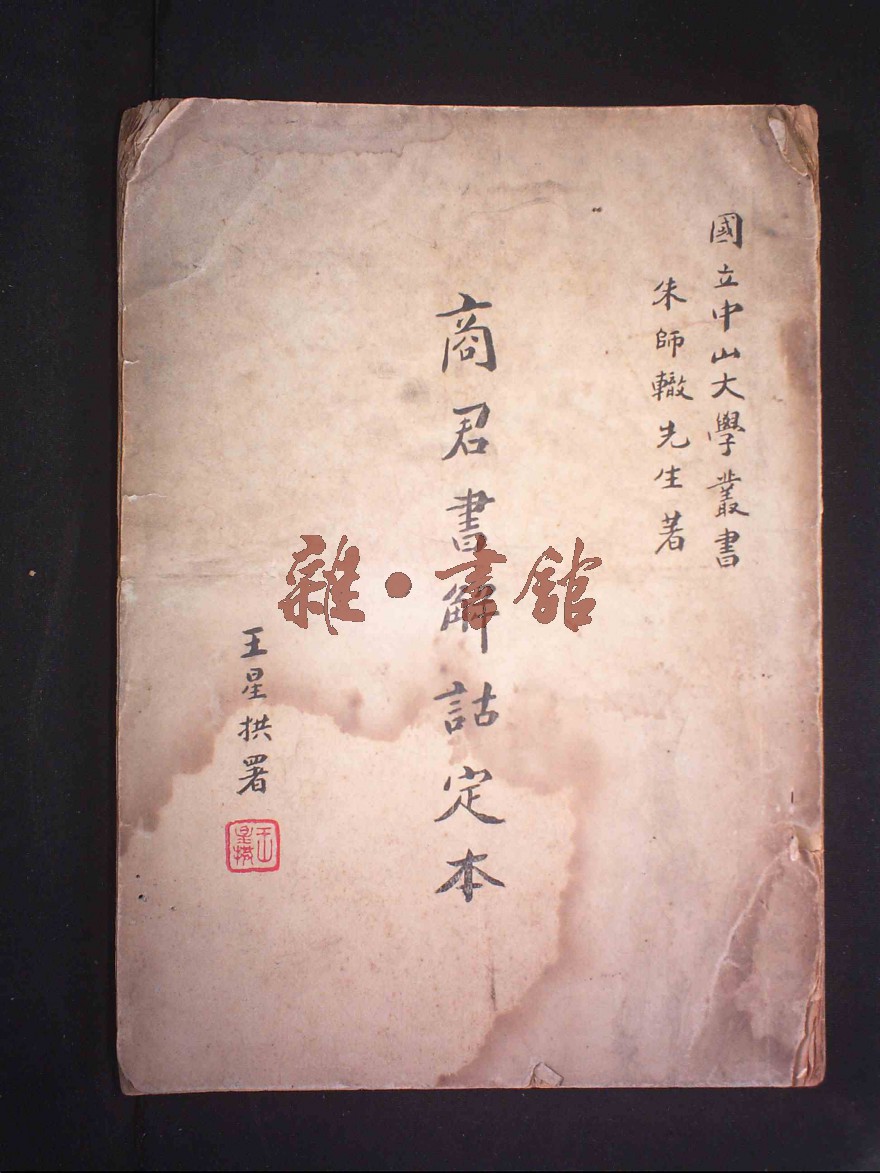 國立中山大學叢書
朱師轍先生著
商君書解詁定本
王星拱署
王星拱
雜·書館